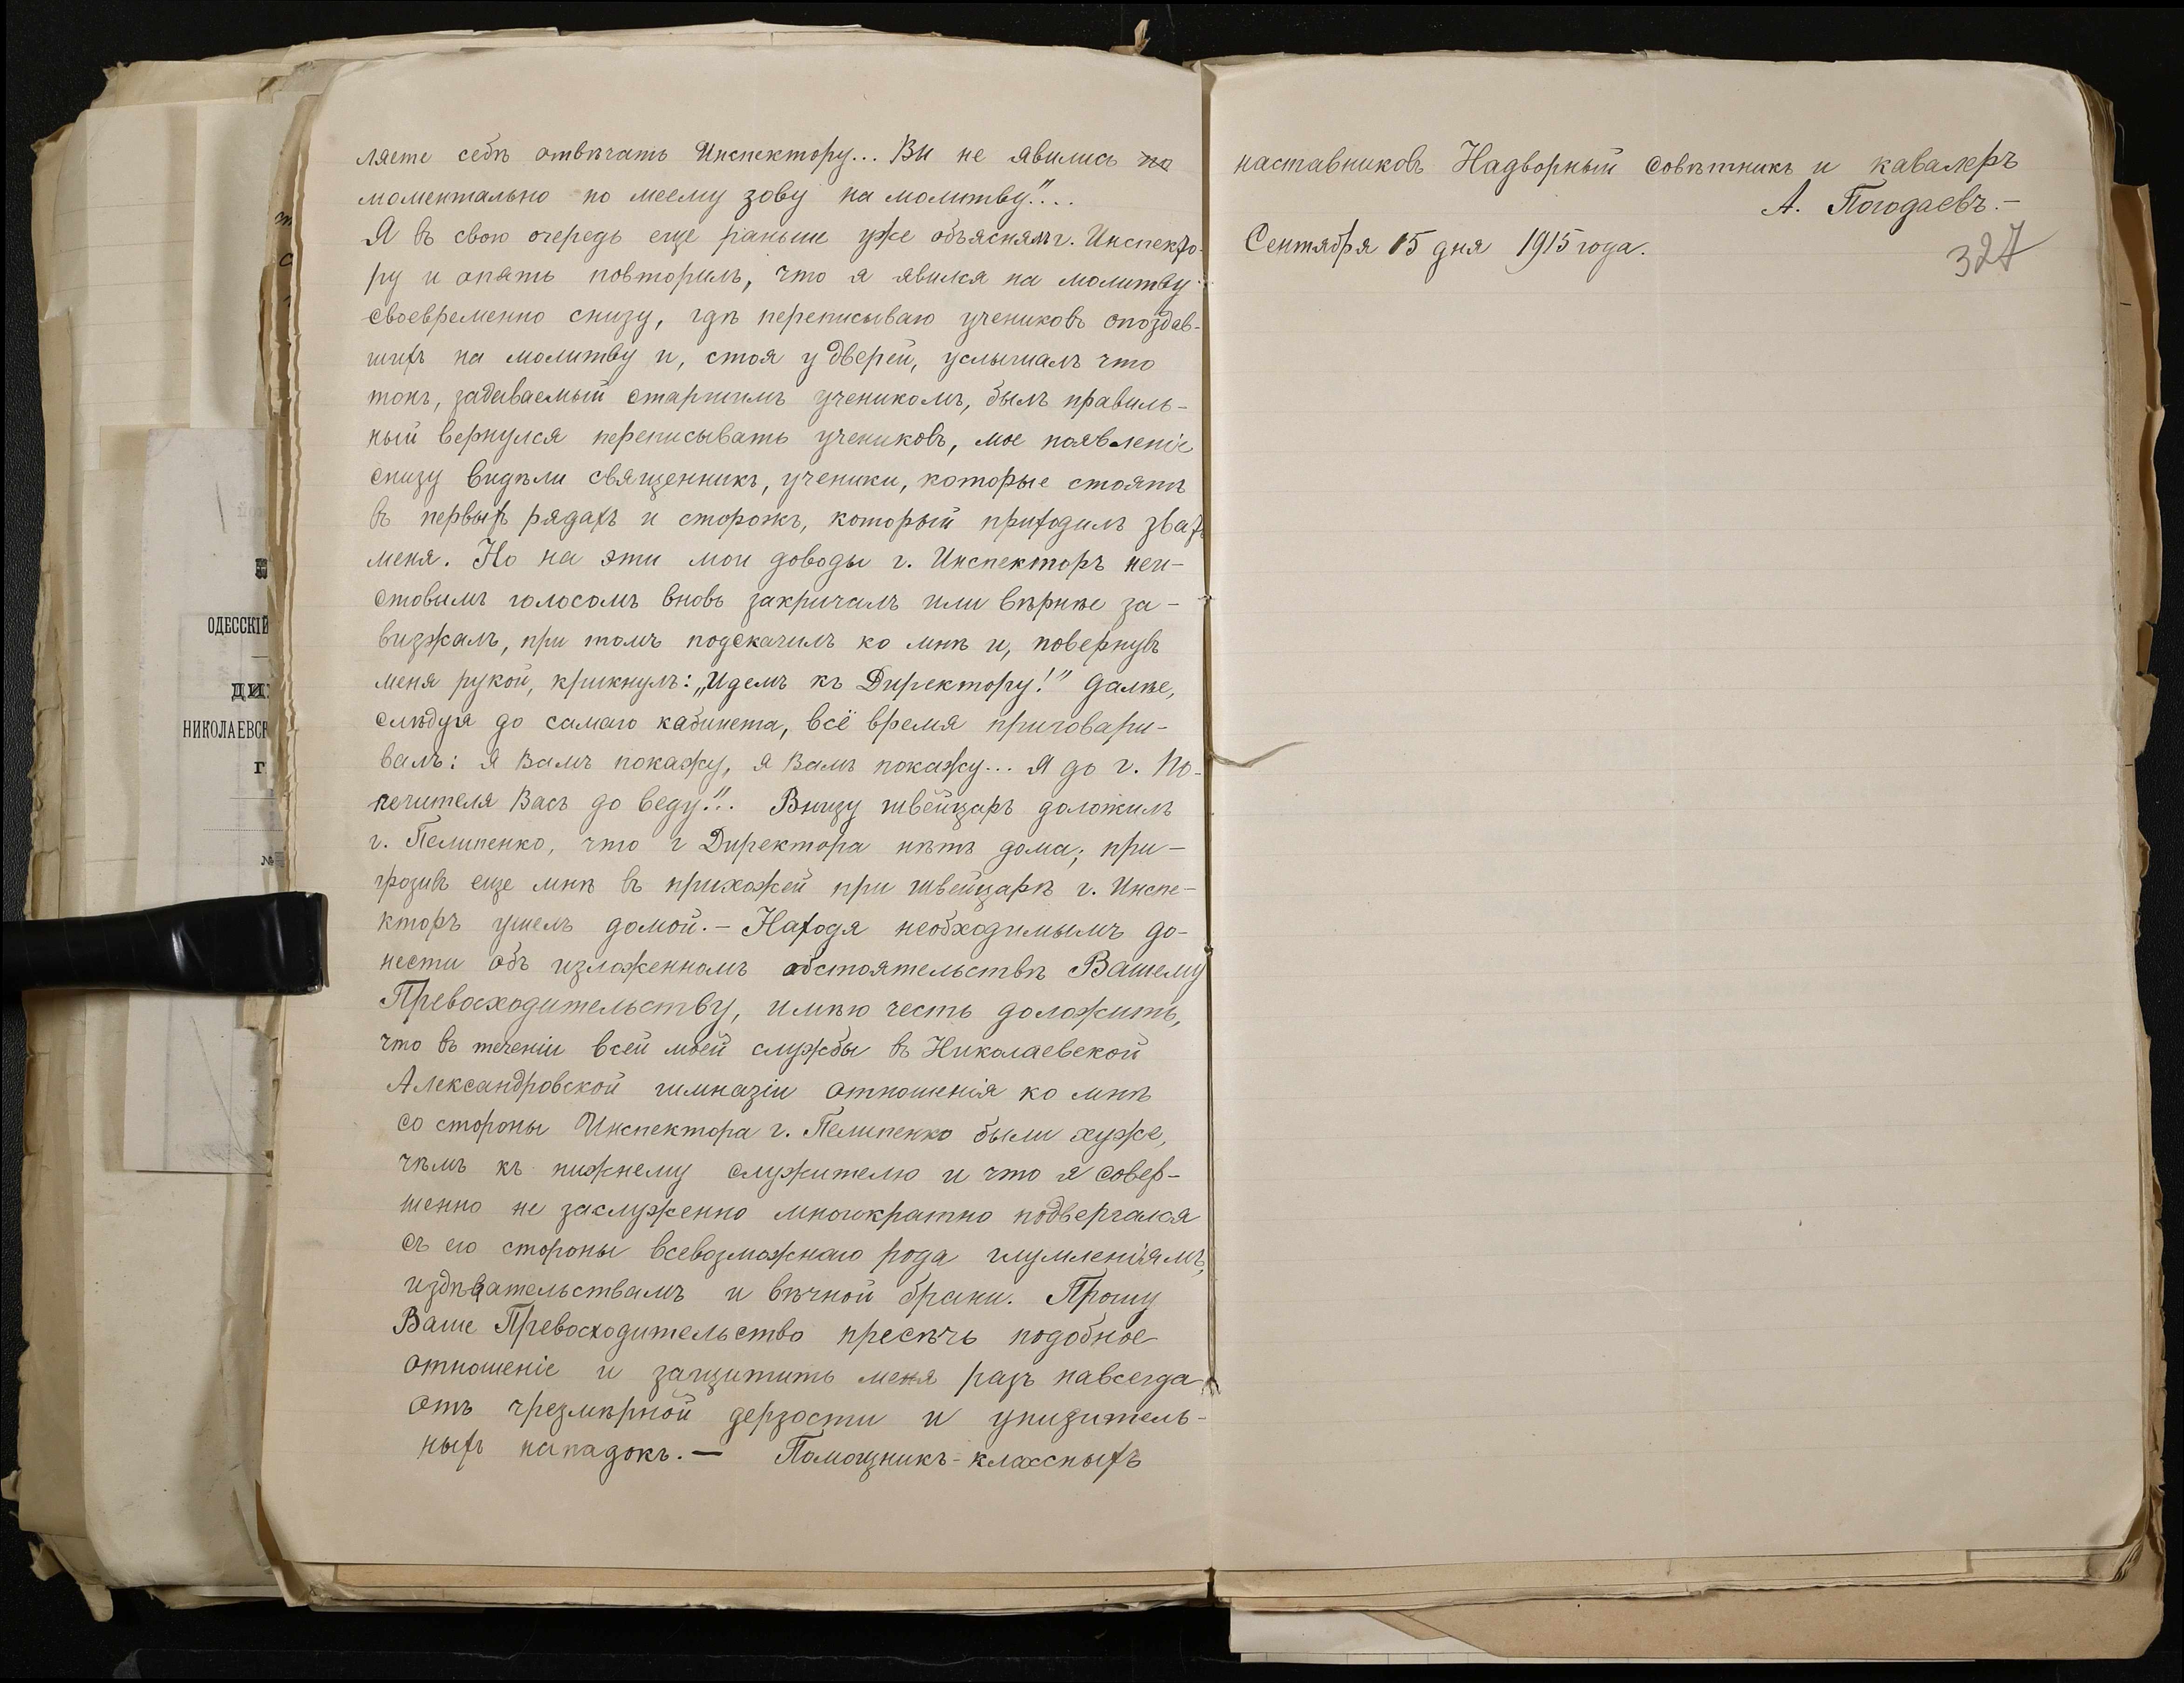 ляете себѣ отвѣчать Инспектору... Вы не явились по
моментально по моему зову на молитву"...
Я въ свою очередь еще раньше уже объяснялъ г. Инспекто-
ру и опять повторилъ, что я явился на молитву
своевременно снизу, гдѣ переписываю учениковъ опоздав-
шихъ на молитву и, стоя у дверей, услышалъ что
тонъ, задаваемый старшимъ ученикомъ, былъ правиль-
ный вернулся переписывать учениковъ, мое появленіе
снизу видѣли священникъ, ученики, которые стоятъ
въ первыхъ рядахъ и сторожъ, который приходилъ звать
меня. Но на эти мои доводы г. Инспекторъ неи-
стовымъ голосомъ вновь закричалъ или вѣрнѣе за-
визжалъ, при томъ подскачилъ ко мнѣ и, повернувъ
меня рукой, крикнулъ: „Идемъ къ Директору!" Далѣе,
слѣдуя до самаго кабинета, всё время приговари-
валъ: я Вамъ покажу, я Вамъ покажу... Я до г. По-
печителя Васъ до веду!!. Внизу швейцаръ доложилъ
г. Пелипенко, что г Директора нѣтъ дома; при-
грозивъ еще мнѣ въ прихожей при швейцарѣ г. Инспе-
кторъ ушелъ домой. – Находя необходимымъ до-
нести объ изложенномъ обстоятельствѣ Вашему
Превосходительству, имѣю честь доложить,
что въ теченіи всей моей службы въ Николаевской
Александровской гимназіи отношенія ко мнѣ
со стороны Инспектора г. Пелипенко были хуже,
чѣмъ къ нижнему служителю и что я совер-
шенно не заслуженно многократно подвергался
съ его стороны всевозможнаго рода глумленіямъ,
издѣвательствамъ и вѣчной брани. Прошу
Ваше Превосходительство пресѣчь подобное
отношеніе и защитить меня разъ навсегда
отъ чрезмѣрной дерзости и унизитель-
ныхъ нападокъ. — Помощникъ-классныхъ
наставниковъ Надворный совѣтникъ и кавалеръ
А. Погодаевъ. –
Сентября 15 дня 1915 года.
327
ОДЕССКІЙ
НИКОЛАЕВСК
№